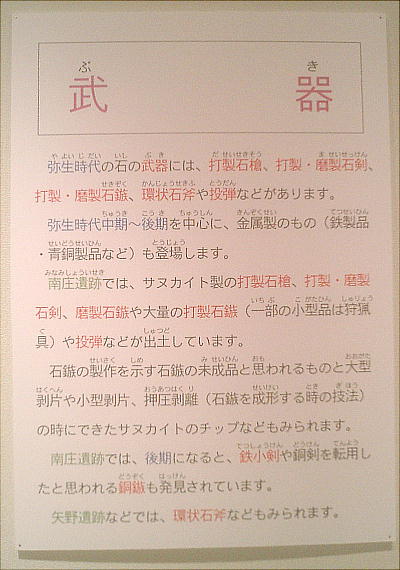 武器
弥生時代の石の武器には、打製石槍、打製・磨製石剣、
打製・磨製石鏃、環状石斧や投弾などがあります。
弥生時代中期～後期を中心に、金属製のもの（鉄製品
・青銅製品など）も登場します。
南庄遺跡では、サヌカイト製の打製石槍、打製・磨製
石剣、磨製石鏃や大量の打製石鏃（一部の小型品は狩猟
具）や投弾などが出土しています。
石鏃の製作を示す石鏃の未成品と思われるものと大型
剥片や小型剥片、押圧剥離（石鏃を成形する時の技法）
の時にできたサヌカイトのチップなどもみられます。
南庄遺跡では、後期になると、鉄小剣や銅剣を転用し
たと思われる銅鏃も発見されています。
矢野遺跡などでは、環状石斧などもみられます。